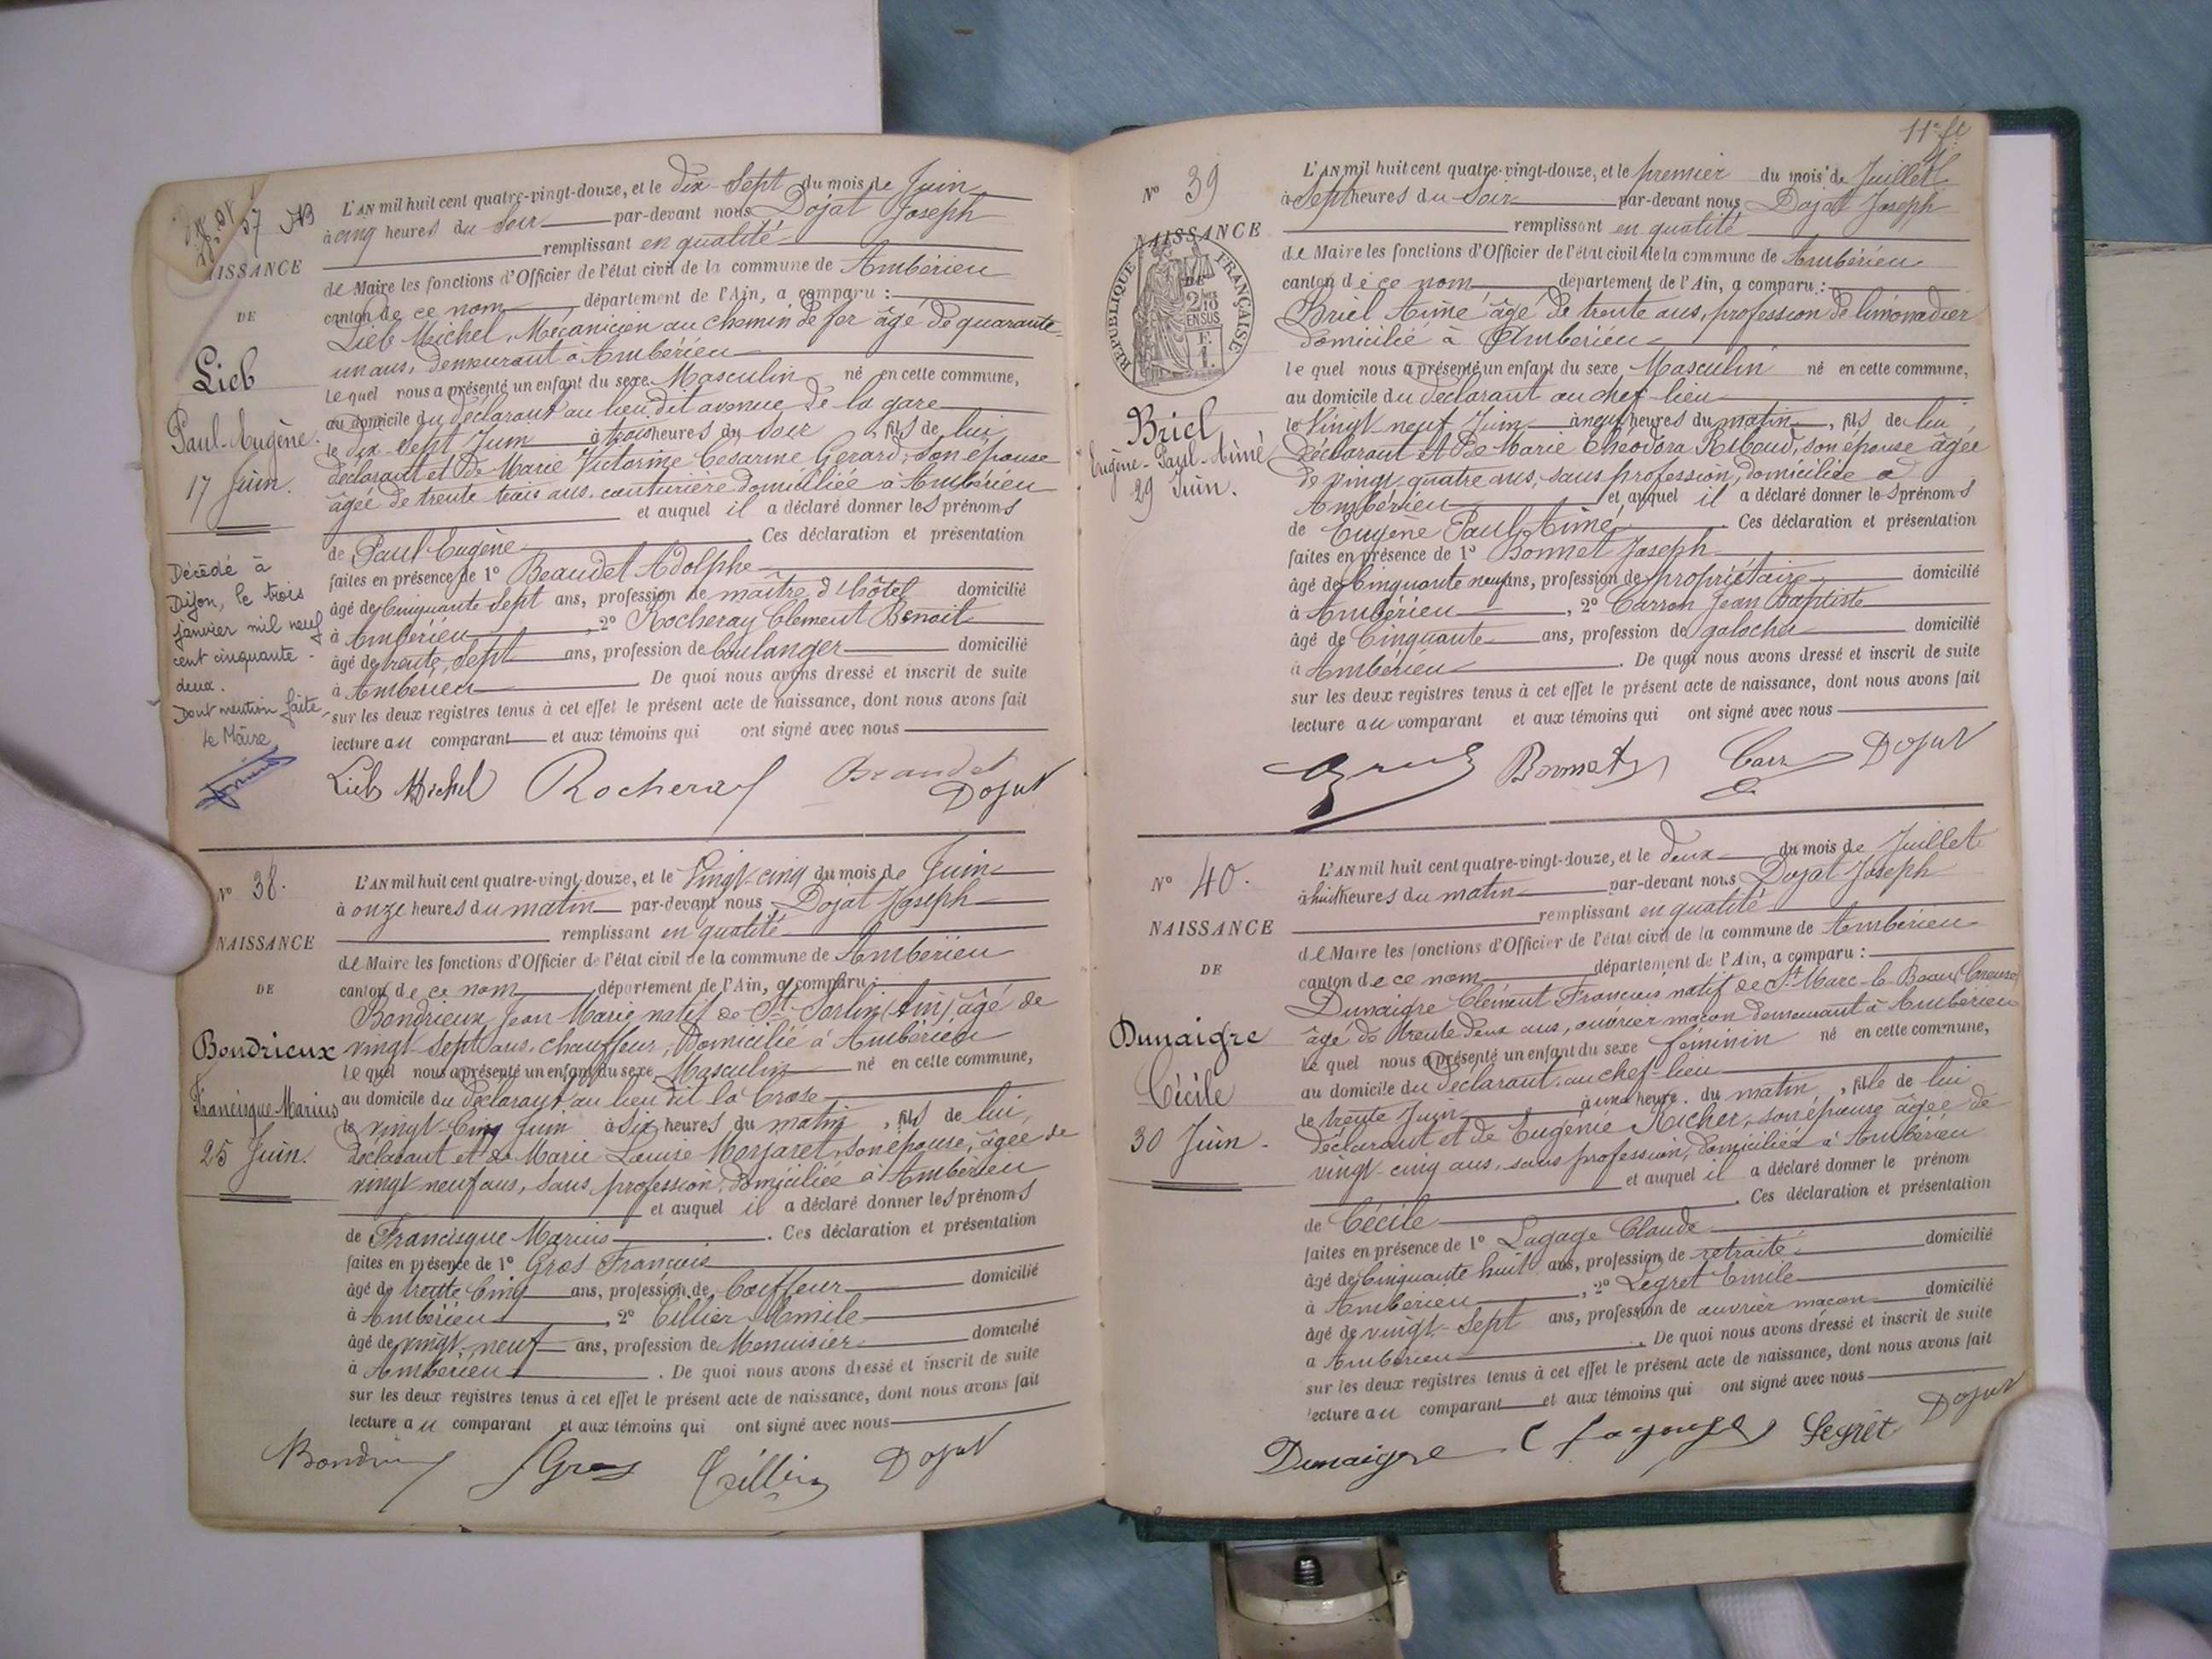 37
NAISSANCE
DE
Lieb
Paul-Eugène.
17 Juin.
Décédé à
Dijon, le trois
janvier mil neuf
cent cinquante-
deux.
Dont mention faite
Le Maire,
L'AN mil huit cent quatre-vingt-douze, et le dix-Sept du mois de Juin
à cinq heures du Soir par-devant nous Dojat Joseph
remplissant en qualité
de Maire les fonctions d'Officier de l'état civil de la commune de Ambérieu
canton de ce nom département de l'Ain, a comparu :
Lieb Michel, Mécanicien au chemin de fer âgé de quarante-
un ans, demeurant à Ambérieu
lequel nous a présenté un enfant du sexe Masculin né en cette commune,
au domicile du déclarant au lieu dit avenue de la gare
le dix-sept Juin à trois heures du Soir, fils de lui
déclarant et de Marie Victorine Césarine Gerard, son épouse
âgée de trente trois ans, couturière domiciliée à Ambérieu
et auquel il a déclaré donner les prénoms
de Paul Eugène. Ces déclaration et présentation
faites en présence de 1° Beaudet Adolphe
âgé de Cinquante Sept ans, profession de maître d'hôtel domicilié
à Ambérieu, 2° Rocheray Clement Benoit
âgé de trente Sept ans, profession de boulanger domicilié
à Ambérieu. De quoi nous avons dressé et inscrit de suite
sur les deux registres tenus à cet effet le présent acte de naissance, dont nous avons fait
lecture au comparant et aux témoins qui ont signé avec nous
Lieb Michel Rocheray Beaudet
Dojat
N° 38.
NAISSANCE
DE
Bondrieux
Francisque Marius
25 Juin.
L'AN mil huit cent quatre-vingt-douze, et le Vingt-cinq du mois de Juin
à onze heures du matin par-devant nous Dojat Joseph
remplissant en qualité
de Maire les fonctions d'Officier de l'état civil de la commune de Ambérieu
canton de ce nom département de l'Ain, a comparu :
Bondrieux Jean Marie natif de St Sorlin (Ain) âgé de
vingt-Sept ans, chauffeur, Domicilié à Ambérieu
lequel nous a présenté un enfant du sexe Masculin né en cette commune,
au domicile du déclarant au lieu dit la Croze
le vingt-Cinq Juin à Six heures du matin, fils de lui
déclarant et de Marie Louise Morjaret, son épouse, âgée de
vingt neuf ans, Sans profession, domiciliée à Ambérieu
et auquel il a déclaré donner les prénoms
de Francisque Marius. Ces déclaration et présentation
faites en présence de 1° Gros François
âgé de trente Cinq ans, profession de Coiffeur domicilié
à Ambérieu, 2° Tillier Emile
âgé de vingt-neuf ans, profession de Menuisier domicilié
à Ambérieu. De quoi nous avons dressé et inscrit de suite
sur les deux registres tenus à cet effet le présent acte de naissance, dont nous avons fait
lecture au comparant et aux témoins qui ont signé avec nous
Gros Tillier Dojat
11e ft
N° 39
NAISSANCE
DE
RÉPUBLIQUE FRANÇAISE
2/10 EN SUS
Briel
Eugène-Paul-Aimé
29 Juin.
L'AN mil huit cent quatre-vingt-douze, et le premier du mois de Juillet
à Sept heures du Soir par-devant nous Dojat Joseph
remplissant en qualité
de Maire les fonctions d'Officier de l'état civil de la commune de Ambérieu
canton de ce nom département de l'Ain, a comparu :
Briel Aimé âgé de trente ans, profession de limonadier
domicilié à Ambérieu
lequel nous a présenté un enfant du sexe Masculin né en cette commune,
au domicile du déclarant au chef-lieu
le Vingt neuf Juin à neuf heures du matin, fils de lui
déclarant et de Marie Théodora Ribaud, son épouse âgée
de vingt quatre ans, sans profession, domiciliée à
Ambérieu et auquel il a déclaré donner les prénoms
de Eugène Paul Aimé. Ces déclaration et présentation
faites en présence de 1° Bonnet Joseph
âgé de Cinquante neuf ans, profession de propriétaire domicilié
à Ambérieu, 2° Carron Jean Baptiste
âgé de Cinquante ans, profession de galocher domicilié
à Ambérieu. De quoi nous avons dressé et inscrit de suite
sur les deux registres tenus à cet effet le présent acte de naissance, dont nous avons fait
lecture au comparant et aux témoins qui ont signé avec nous
Bonnet Dojat
N° 40.
NAISSANCE
DE
Dunaigre
Cécile
30 Juin.
L'AN mil huit cent quatre-vingt-douze, et le deux du mois de Juillet
à huit heures du matin par-devant nous Dojat Joseph
remplissant en qualité
de Maire les fonctions d'Officier de l'état civil de la commune de Ambérieu
canton de ce nom département de l'Ain, a comparu :
Dunaigre Clément François natif de St Marc-le-Beau (Creuse)
âgé de trente deux ans, ouvrier maçon demeurant à Ambérieu
lequel nous a présenté un enfant du sexe féminin né en cette commune,
au domicile du déclarant, au chef-lieu
le trente Juin à une heure du matin, fille de lui
déclarant et de Eugénie Richer, son épouse âgée de
vingt-cinq ans, sans profession, domiciliée à Ambérieu
et auquel il a déclaré donner le prénom
de Cécile. Ces déclaration et présentation
faites en présence de 1° Lagage Claude
âgé de Cinquante huit ans, profession de retraité domicilié
à Ambérieu, 2° Legret Emile
âgé de vingt-Sept ans, profession de ouvrier maçon domicilié
à Ambérieu. De quoi nous avons dressé et inscrit de suite
sur les deux registres tenus à cet effet le présent acte de naissance, dont nous avons fait
lecture au comparant et aux témoins qui ont signé avec nous
Dunaigre Legret Dojat